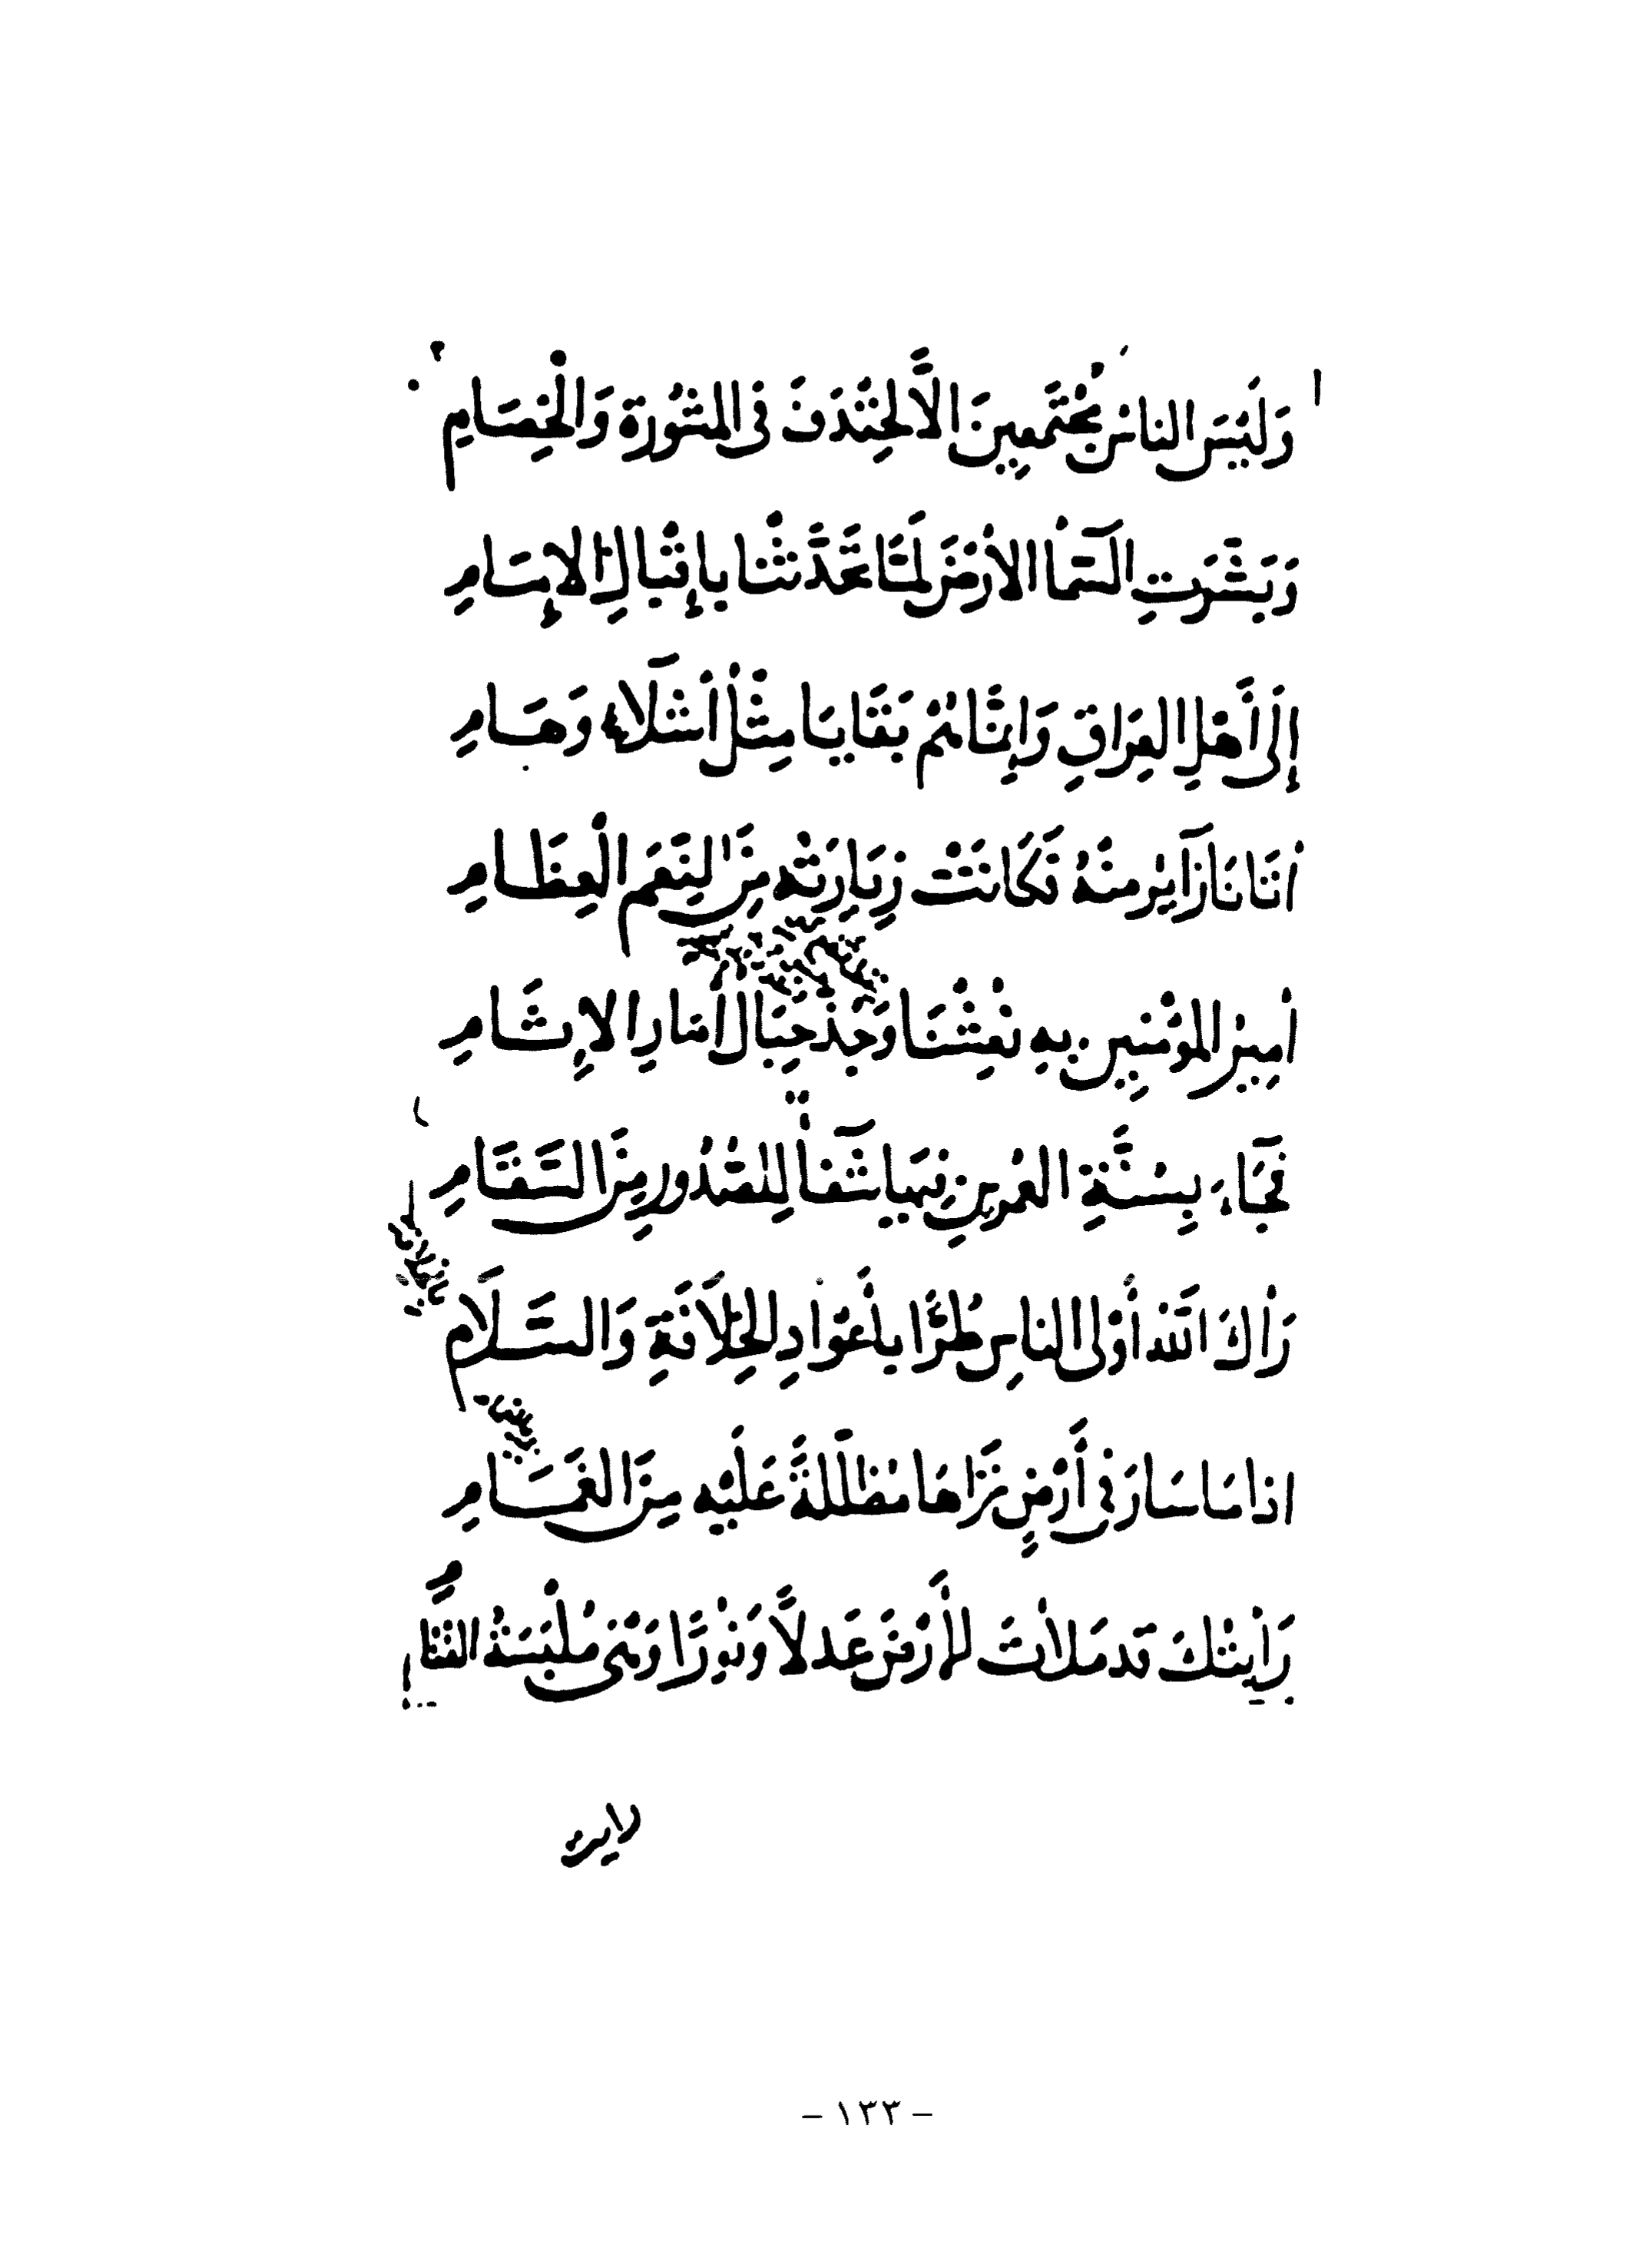 وَلَيْسَ الناسُ مُجْتَمِعِينَ الَّا لِخِنْدَفَ فى المَشُورَةِ وَالْخِصَامِ
وَبَشَّرَتِ السَّمَآءُ الأَرْضَ لَمَّا تَحَدَّثْنَا بِإِقْبَالِ الإِمَامِ
إِلَى أَهْلِ العِرَاقِ وَإِنَّمَا هُمْ بَقَايَا مِثْلُ أَشْلَآءٍ وَهَامِ
اتَانَا زَائِرًا مِنْهُ فَكَانَتْ زِيَارَتُهُ مِنَ النِعَمِ الْعِظَامِ
أَمِيرُ المُؤْمِنِينَ بِهِ نُعِشْنَا وَجُذَّ حِبَالُ أَصَارِ الإِثَامِ
فَجَآءَ بِسُنَّةِ العُمَرَينِ فِيهَا شِفَآءٌ لِلصُّدُورِ مِنَ السَّقَامِ
رَآكَ اللّه أَوْلَى الناسِ طُرًّا بِأَعْوَادِ الخِلَافَةِ وَالسَّلَامِ
اذا مَا سَارَ فى أَرْضٍ تَرَاهَا مُظَلَّلَةً عَلَيْهِ مِنَ الغَمَامِ
رَأَيْتُكَ قد مَلَأْتَ الأَرْضَ عَدلًا وَنُورًا وَهْىَ مُلْبَسَةُ
لايت
- ١٣٣ -